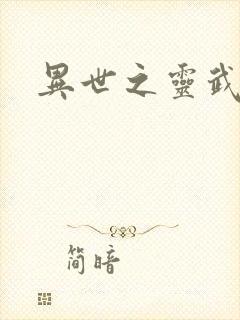 異世之靈武
简暗